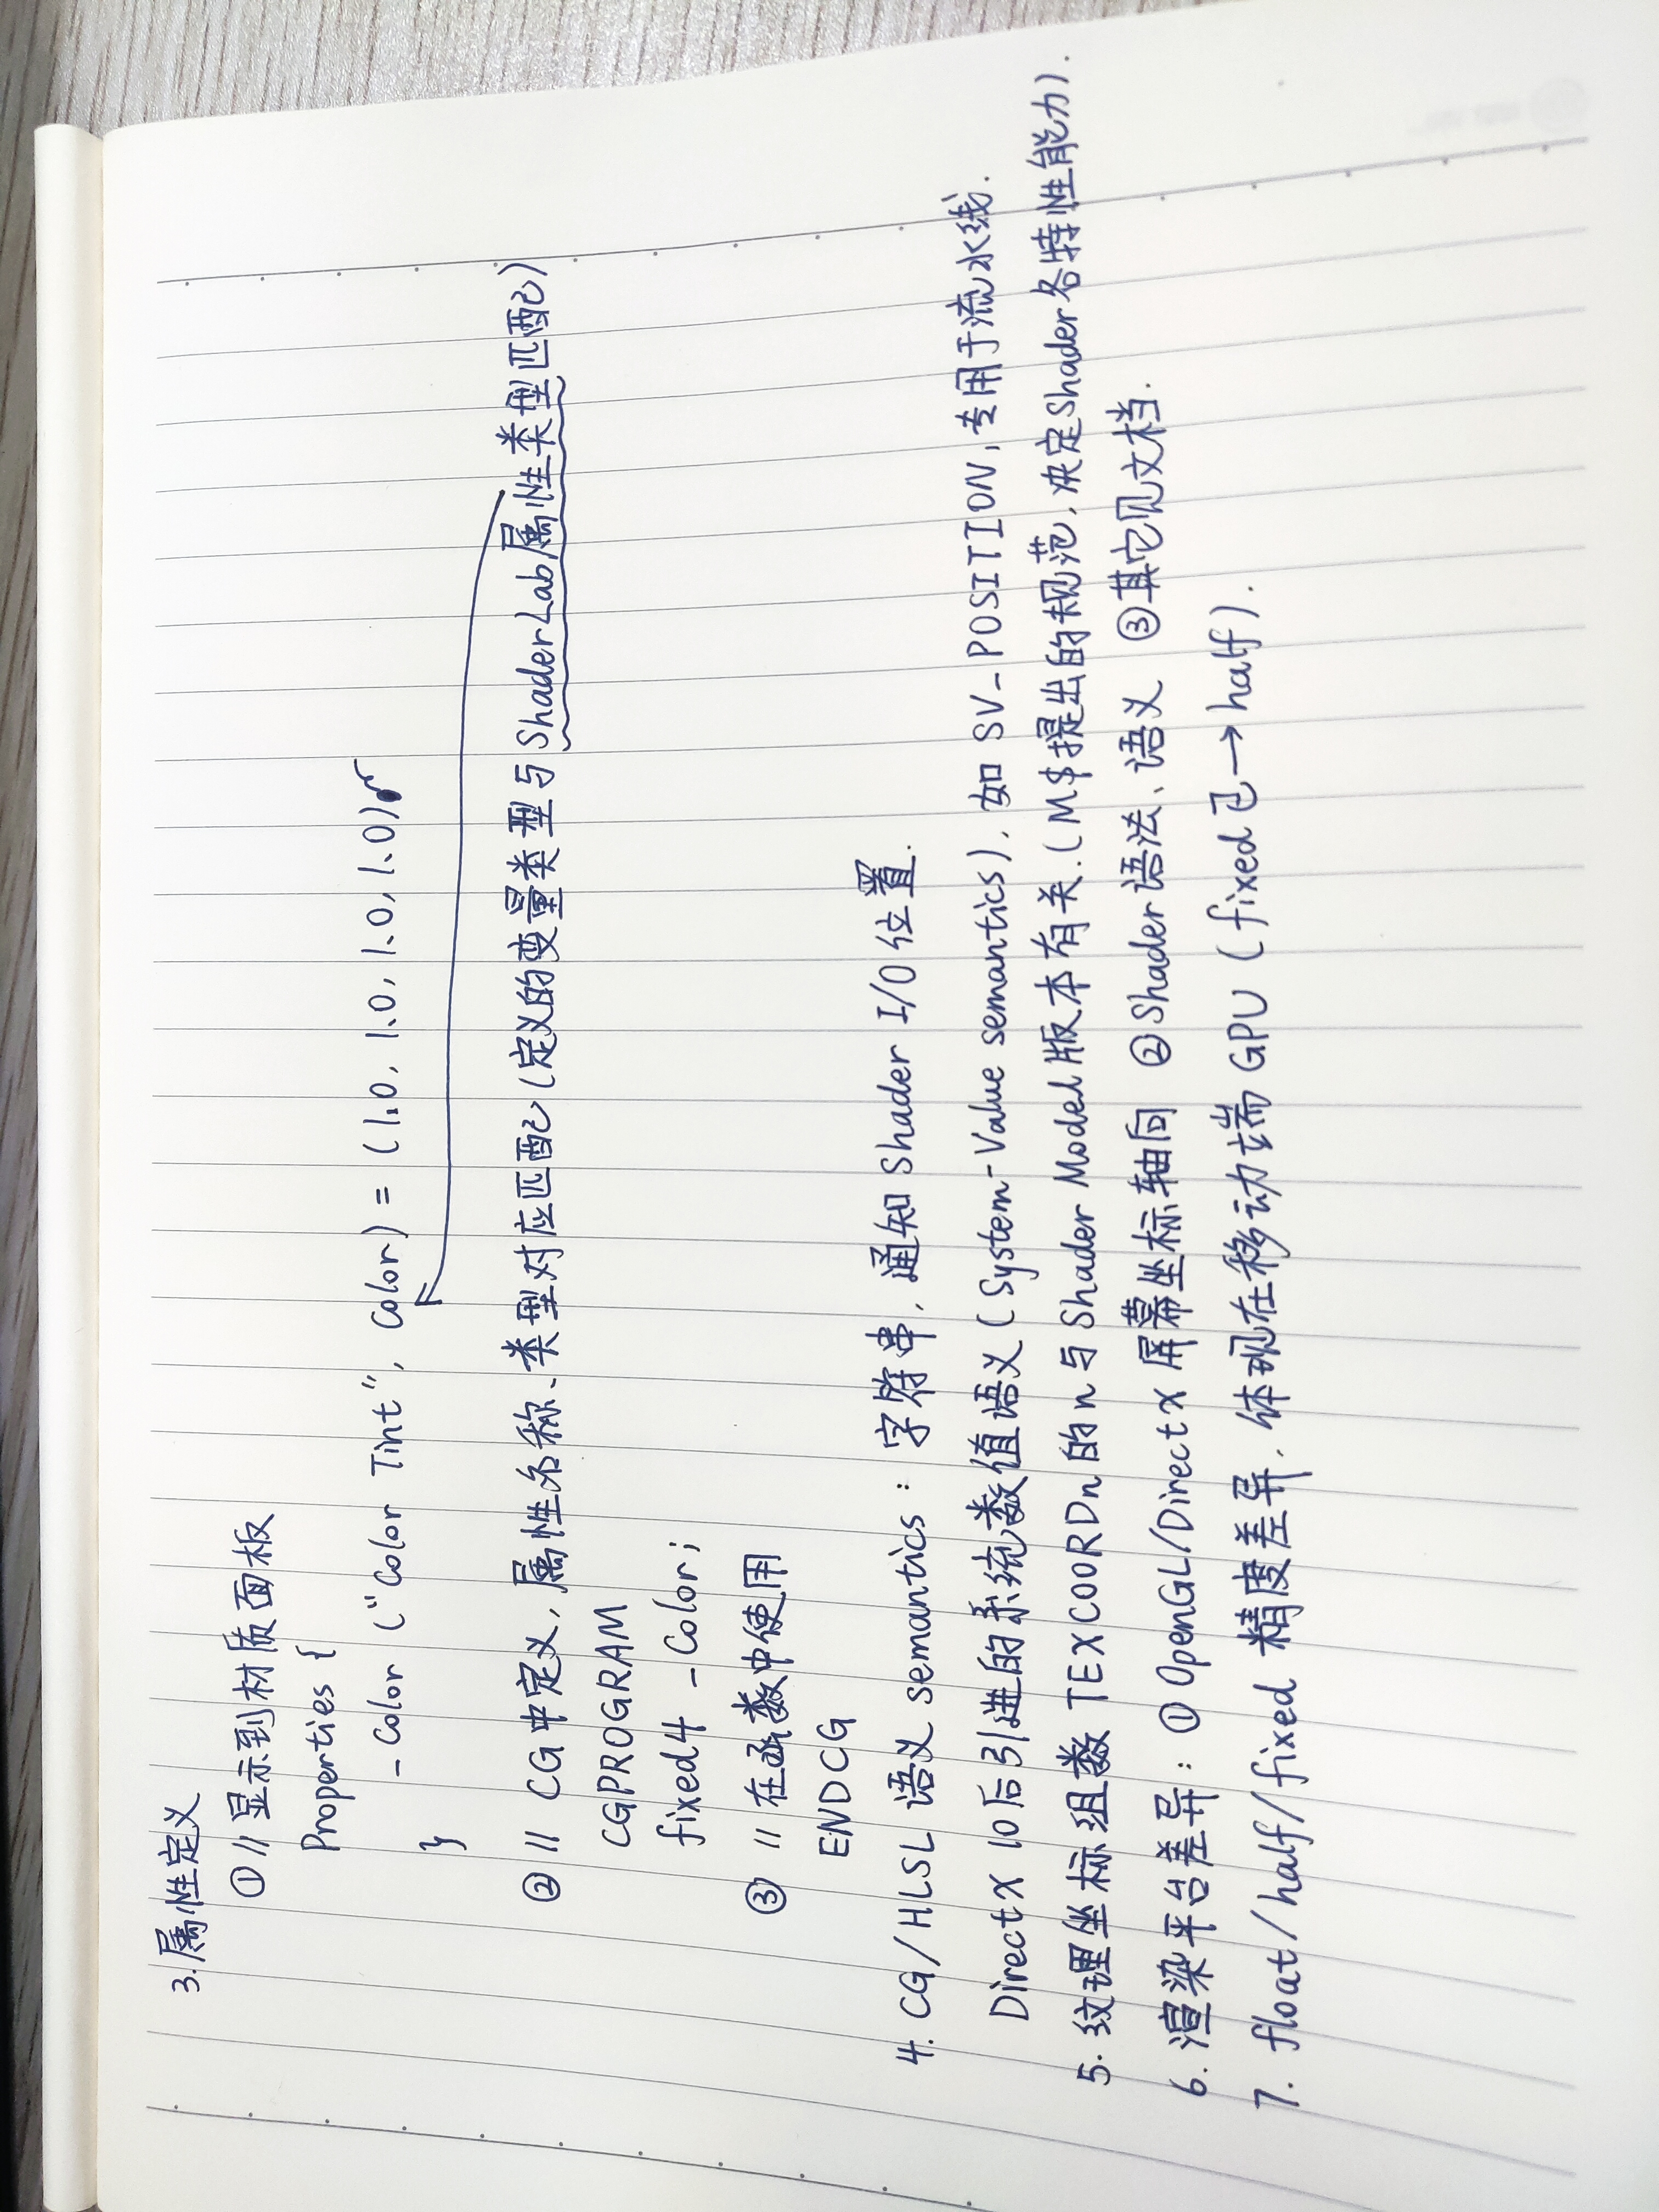 3. 属性定义
① // 显示到材质面板
Properties {
_Color ("Color Tint", Color) = (1.0, 1.0, 1.0, 1.0)
}
② // CG中定义, 属性名称、类型对应匹配 (定义的变量类型与ShaderLab属性类型匹配)
CGPROGRAM
fixed4 _Color;
③ // 在函数中使用
ENDCG
4. CG/HLSL 语义 semantics: 字符串, 通知 Shader I/O 位置.
DirectX 10后引进的系统数值语义 (System-Value semantics), 如 SV_POSITION, 专用于流水线.
5. 纹理坐标组数 TEXCOORDn 的 n 与 Shader Model 版本有关. (M$提出的规范, 决定Shader各特性能力).
6. 渲染平台差异: ① OpenGL/DirectX 屏幕坐标轴向 ② Shader 语法、语义 ③ 其它见文档.
7. float/half/fixed 精度差异, 体现在移动端 GPU (fixed 已→half).